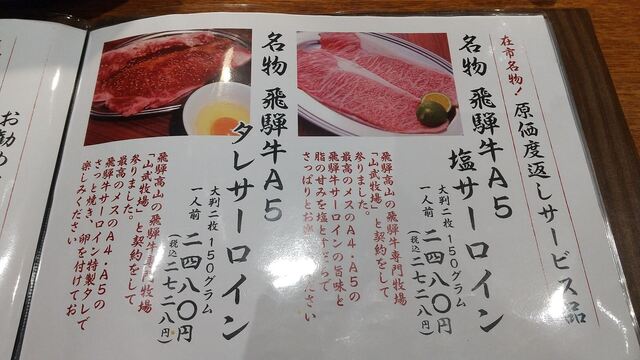 在市名物！
原価度返しサービス品
名物 飛騨牛A5
塩サーロイン
大判二枚 150グラム
一人前 二四八〇円
(税込二七二八円)
飛騨高山の飛騨牛専門牧場
「山武牧場」と契約をして
参りました。
最高のメスのA4・A5の
飛騨牛サーロインの旨味と
脂の甘みを塩とすだちで
さっぱりとお楽しみください
名物 飛騨牛A5
タレサーロイン
大判二枚 150グラム
一人前 二四八〇円
(税込二七二八円)
飛騨高山の飛騨牛専門牧場
「山武牧場」と契約をして
参りました。
最高のメスのA4・A5の
飛騨牛サーロイン特製タレで
さっと焼き、卵を付けてお
楽しみください
お勧め